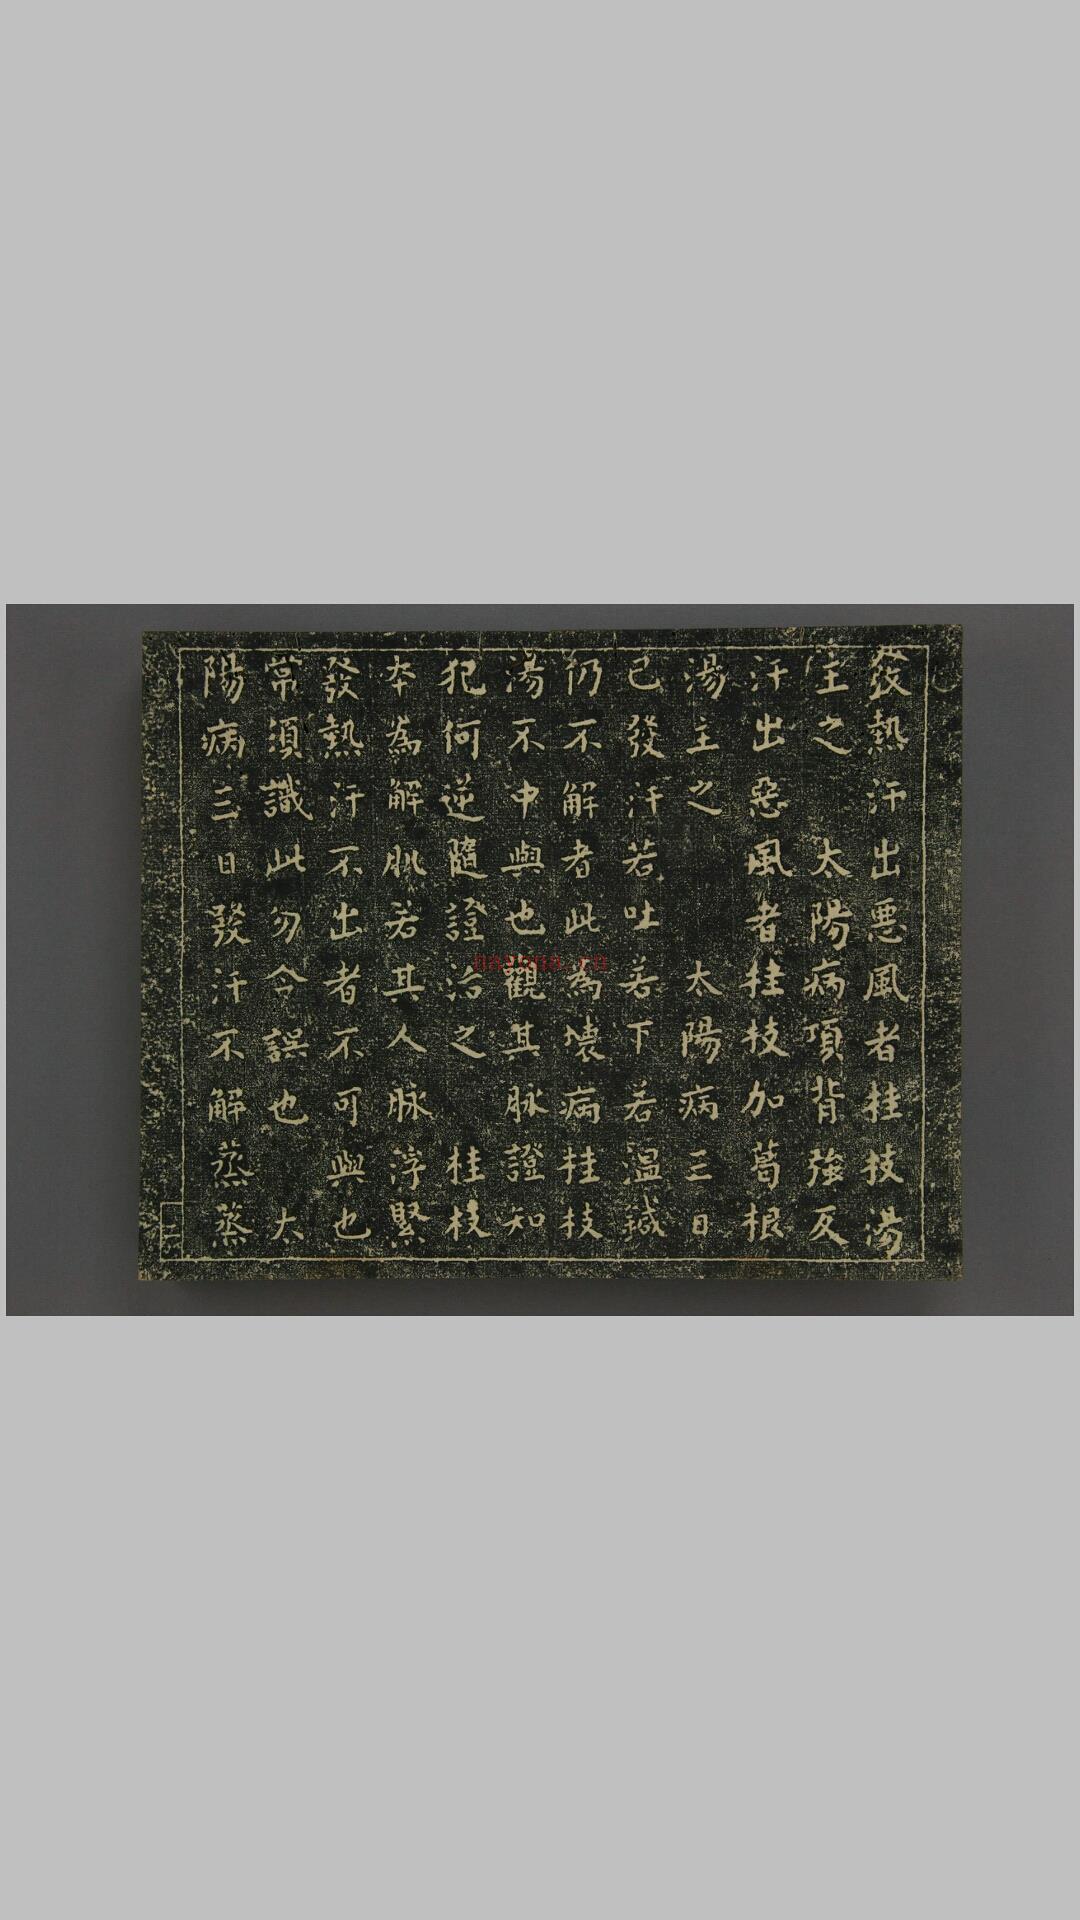 發熱汗出惡風者桂技湯
主之　太陽病項背強反
汗出惡風者桂技加葛根
湯主之　太陽病三日
已發汗若吐若下若温鍼
仍不解者此為壞病桂技
湯不中與也觀其脉證知
犯何逆隨證治之　桂枝
本為解肌若其人脉浮緊
發熱汗不出者不可與也
常須識此勿令誤也　太
陽病三日發汗不解蒸蒸
nayona.cn